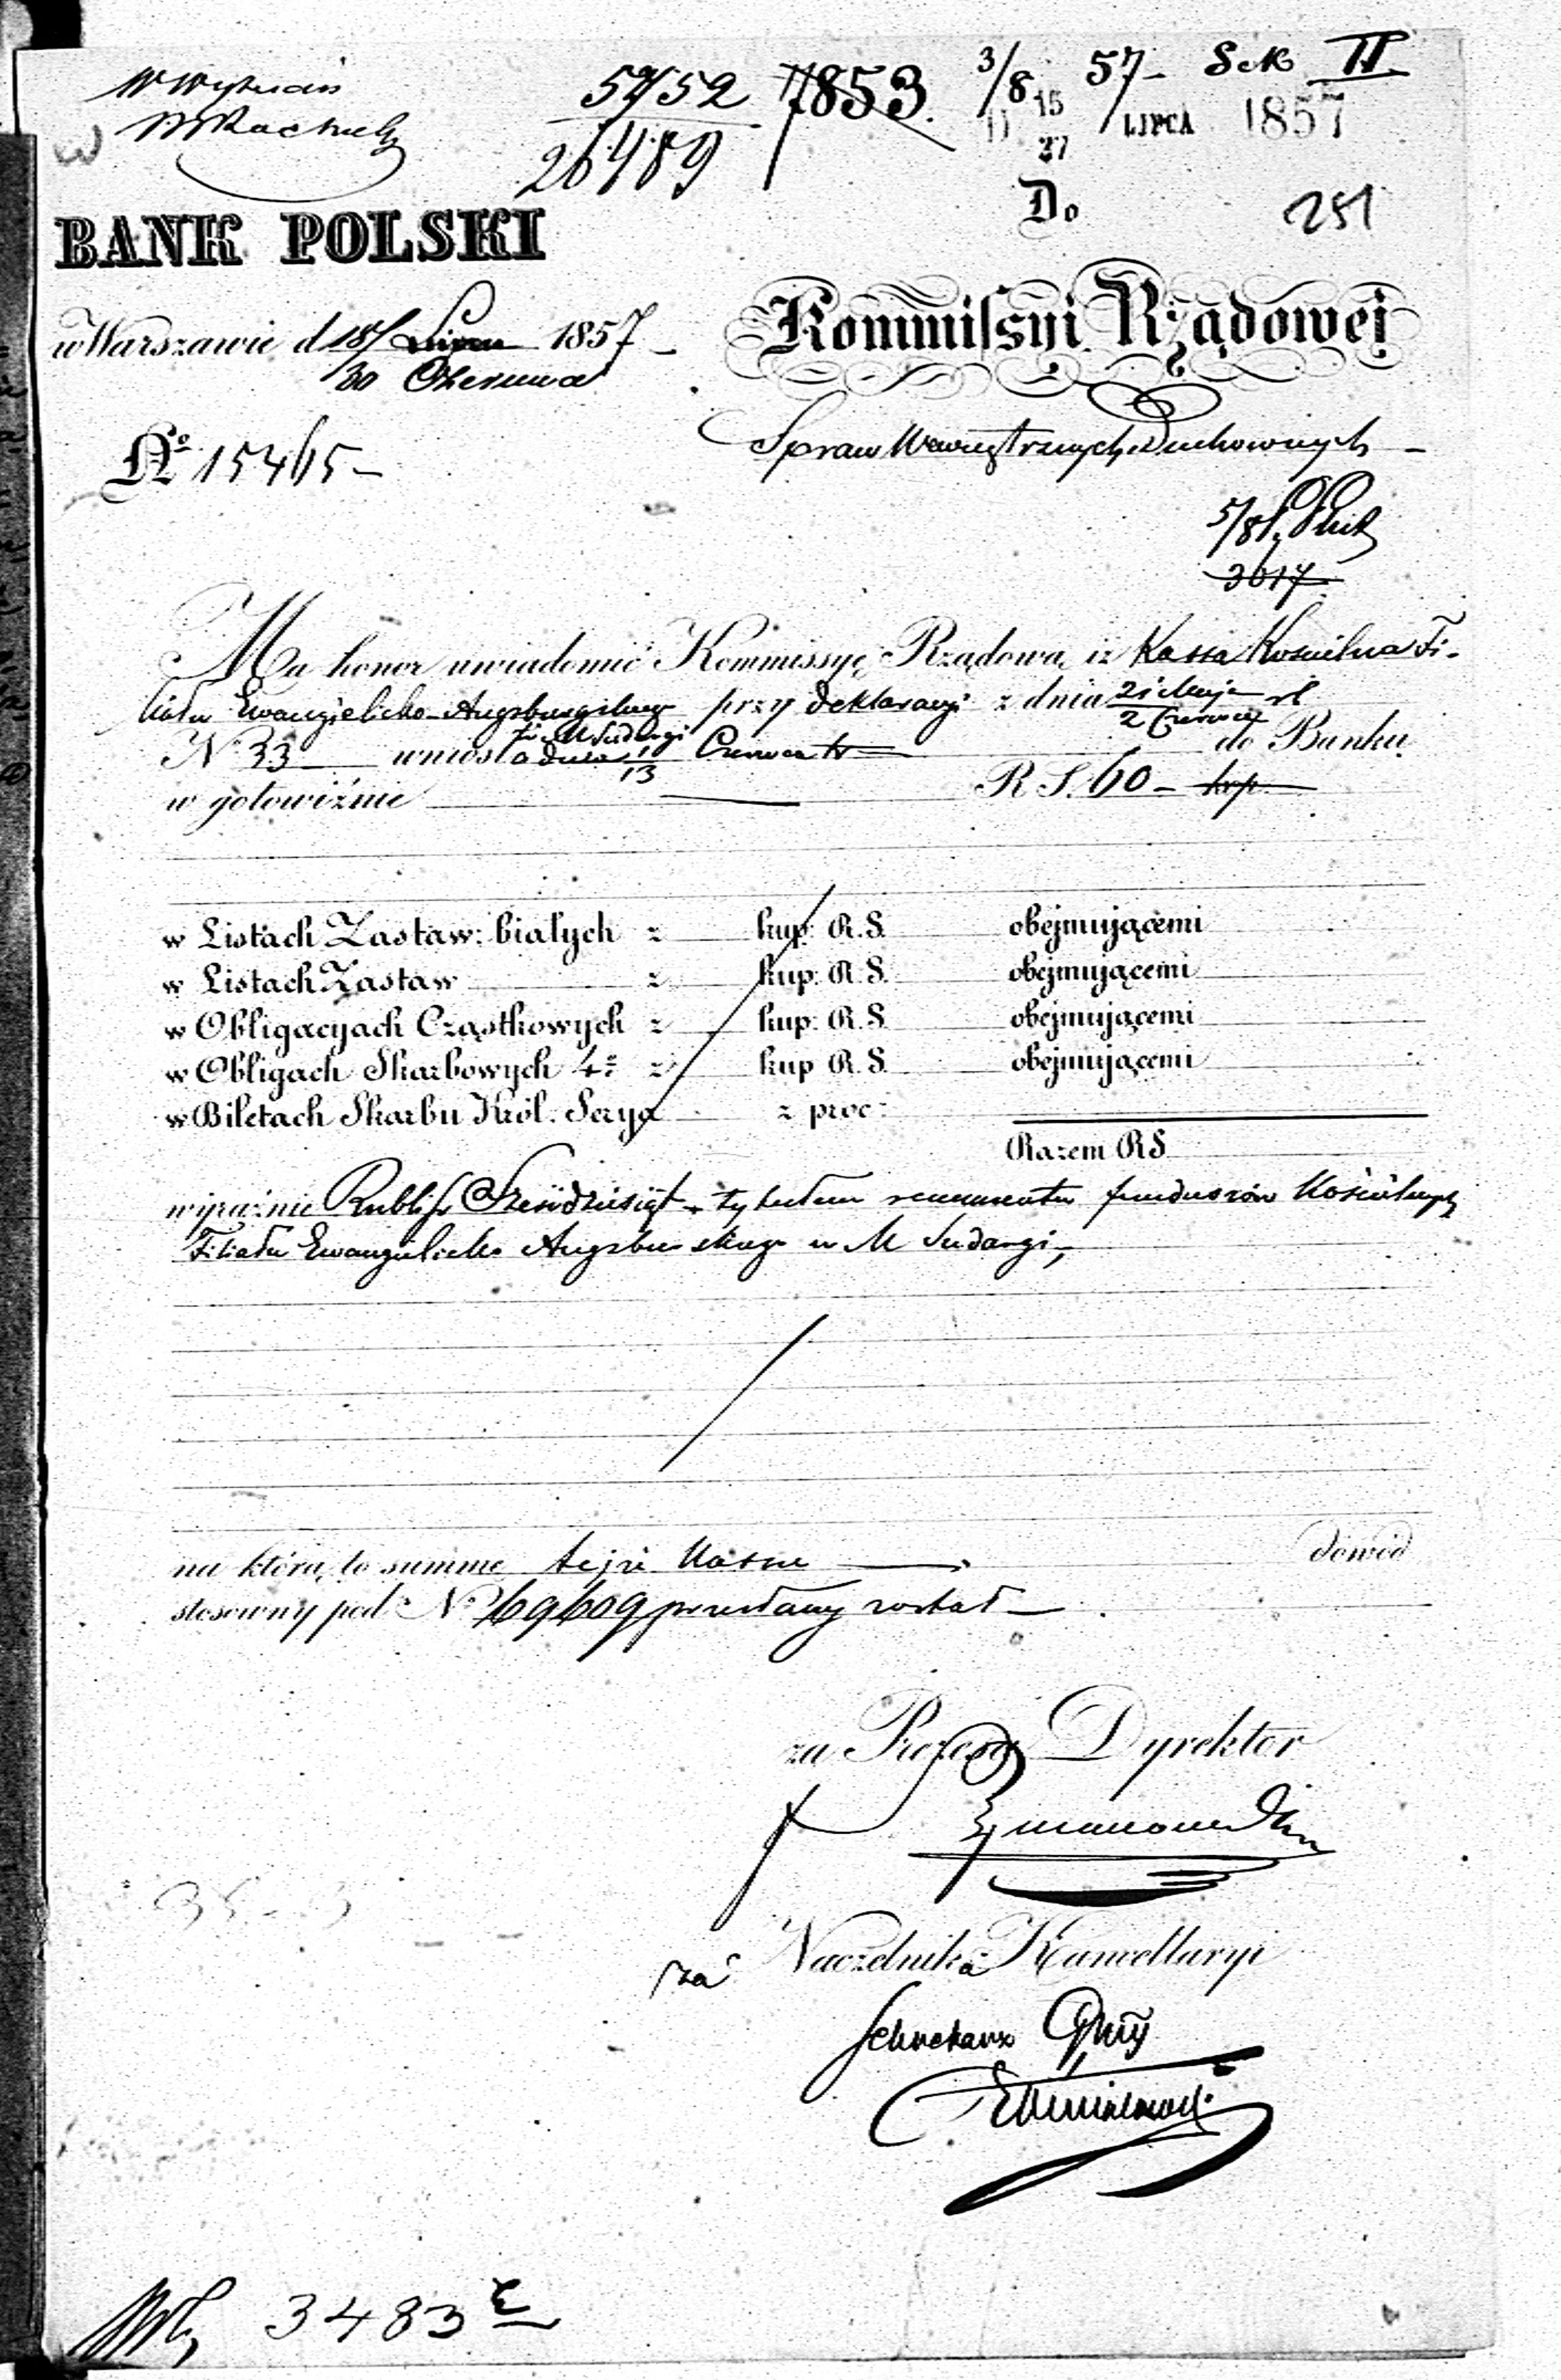 W Wydziale
5752 7853. 3/8 57 Sek II
26489
15
27 LIPCA 1857
Do 251
BANK POLSKI
Kommissyi Rządowej
w Warszawie d 18/30 Czerwca 1857
Spraw Wewnętrznych i Duchownych
No 15465
5/8
3617
Ma honor uwiadomić Kommissyę Rządową iż Kassa Kościelna Fi-
liału Ewangielicko-Augsburgskiego przy deklaracyi z dnia 21 Maja / 2 Czerwca rb
w M Sudargi
No 33 wniosła dnia 1/13 Czerwca tr do Banku
w gotowiźnie RS. 60 - kop.
w Listach Zastaw: białych z kup: R.S. obejmującemi
w Listach Zastaw z kup: R.S. obejmującemi
w Obligacyjach Cząstkowych z kup: R.S. obejmującemi
w Obligach Skarbowych 4% z kup R.S. obejmującemi
w Biletach Skarbu Król. Serya z proc:
Razem RS
wyraźnie Rubli sr Sześćdziesiąt tytułem remanentu funduszów Kościelnych
Filiału Ewangielicko Augsburskiego w M Sudargi,
na którą to summę tejże Kassie dowód
stosowny pod No 69609 przesłany został
za Prezesa Dyrektor
za Naczelnika Kancellaryi
Sekretarz Głny
3483